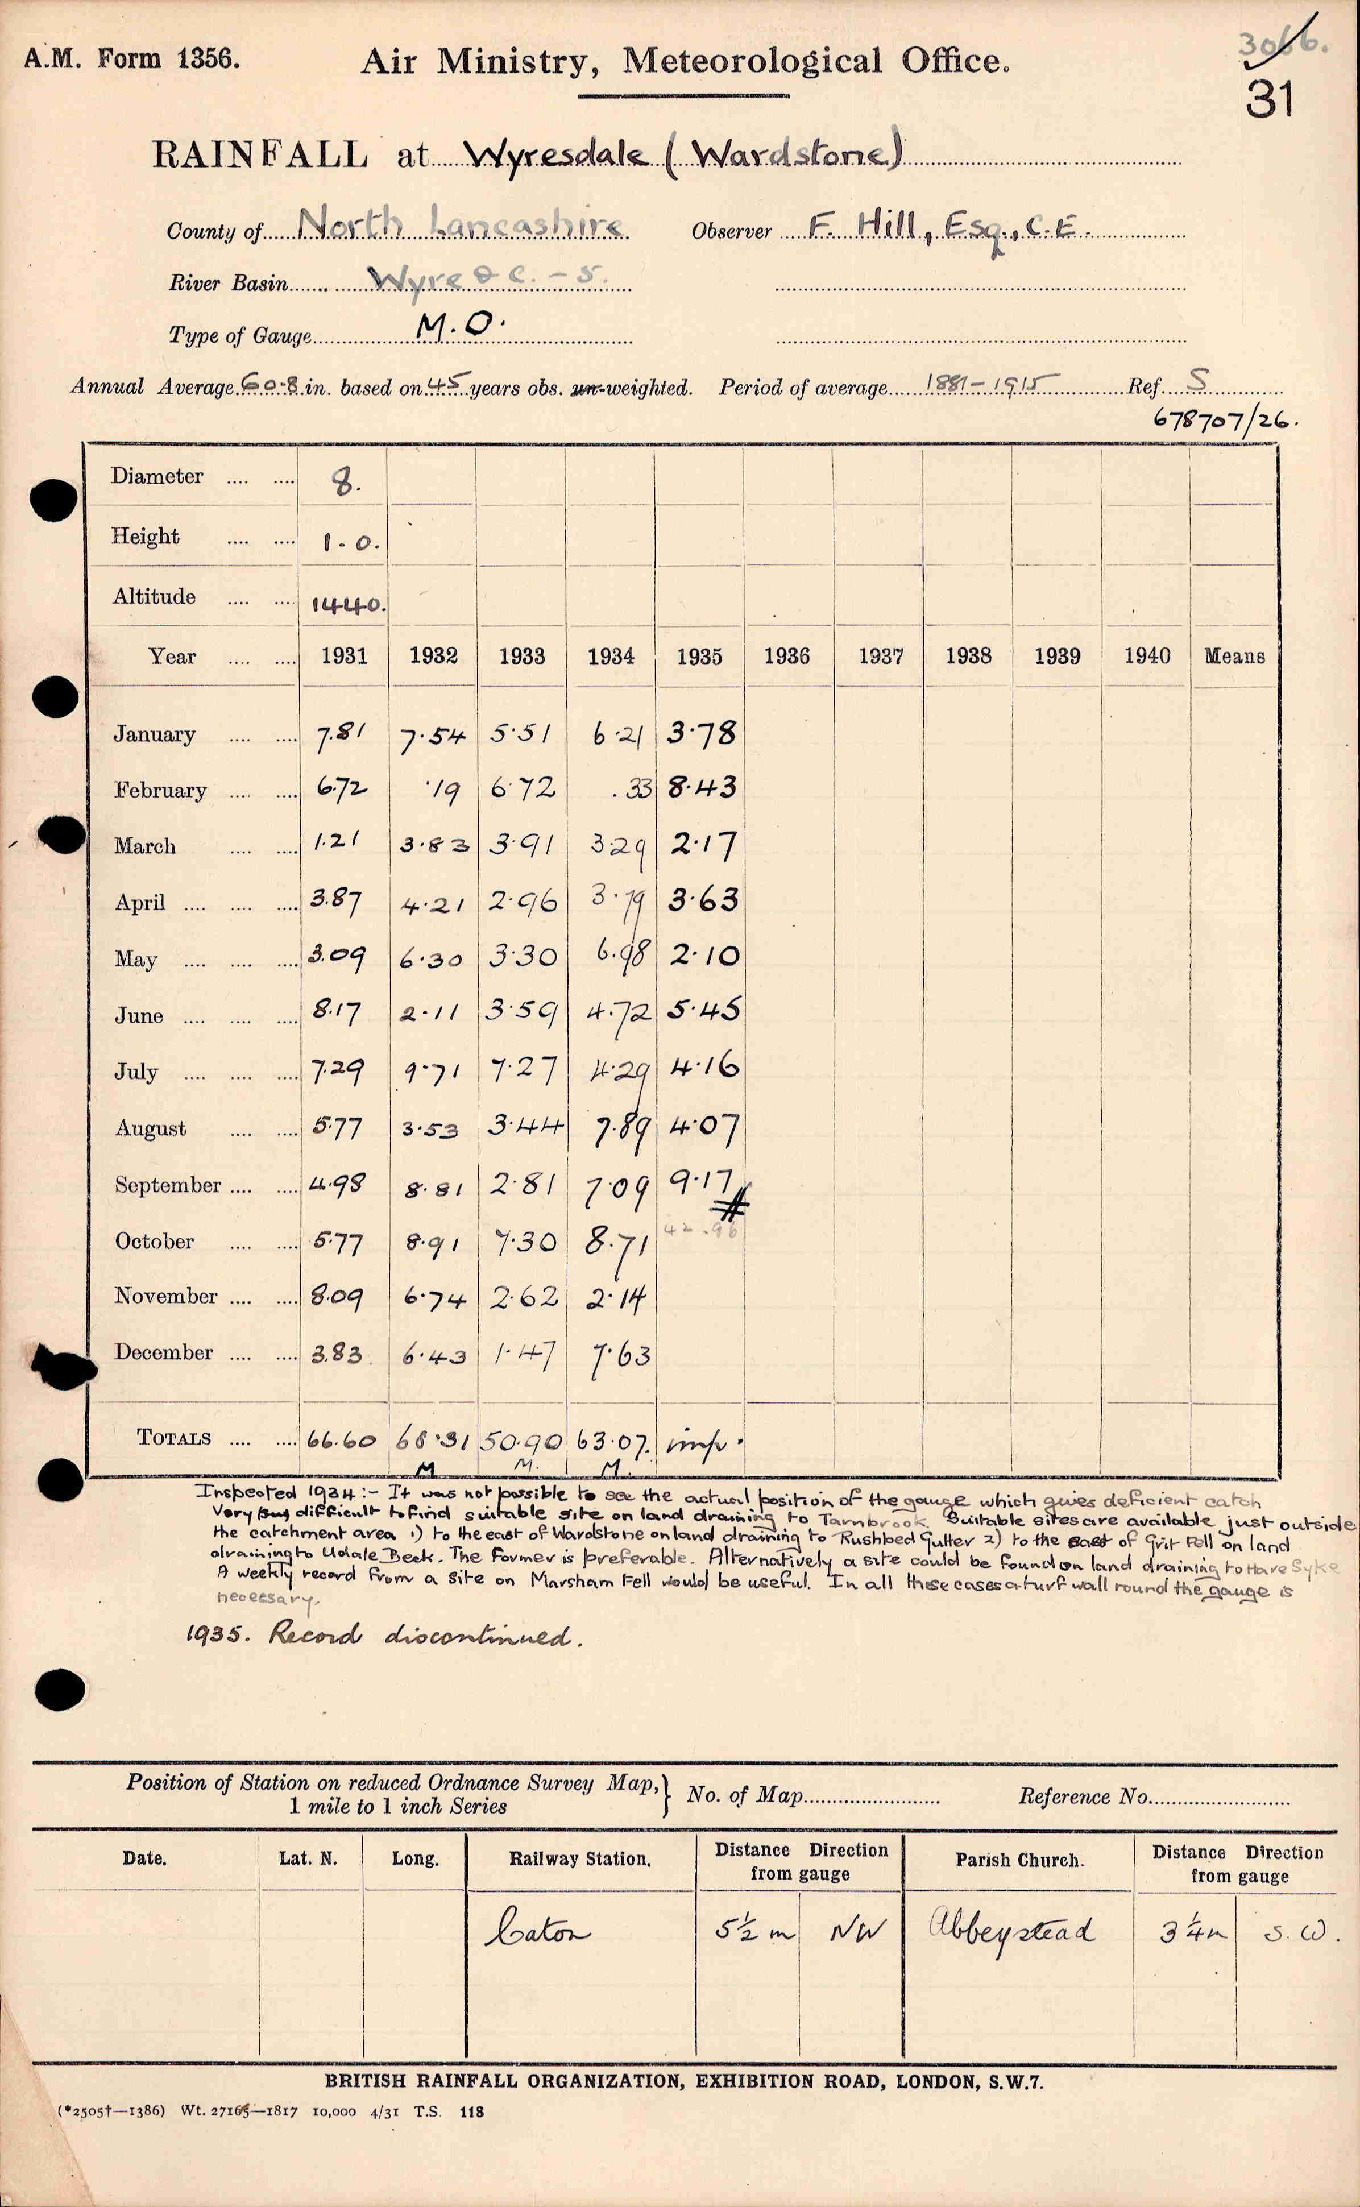 A.M. Form 1356.
Air Ministry, Meteorological Office.
3066.
31
RAINFALL at Wyresdale (Wardstone)
County of North Lancashire Observer F. Hill, Esq., C.E.
River Basin Wyre & C. – 5.
Type of Gauge M.O.
Annual Average 60.8 in. based on 45 years obs. un-weighted. Period of average 1881–1915 Ref. S
678707/26.
Diameter 8.
Height 1-0.
Altitude 1440.
Year 1931 1932 1933 1934 1935 1936 1937 1938 1939 1940 Means
January 7.81 7.54 5.51 6.21 3.78
February 6.72 .19 6.72 .33 8.43
March 1.21 3.83 3.91 3.29 2.17
April 3.87 4.21 2.96 3.79 3.63
May 3.09 6.30 3.30 6.98 2.10
June 8.17 2.11 3.59 4.72 5.45
July 7.29 9.71 7.27 4.29 4.16
August 5.77 3.53 3.44 7.89 4.07
September 4.98 8.81 2.81 7.09 9.17
October 5.77 8.91 7.30 8.71 42.96
November 8.09 6.74 2.62 2.14
December 3.83 6.43 1.47 7.63
TOTALS 66.60 68.31 50.90 63.07. imp.
M M. M.
Inspected 1934:- It was not possible to see the actual position of the gauge which gives deficient catch
Very difficult to find suitable site on land draining to Tarnbrook. Suitable sites are available just outside
the catchment area 1) to the east of Wardstone on land draining to Rushbed Gutter 2) to the east of Grit Fell on land
draining to Udale Beck. The Former is preferable. Alternatively a site could be found on land draining to Hare Syke
A weekly record from a site on Marsham Fell would be useful. In all these cases a turf wall round the gauge is
necessary.
1935. Record discontinued.
Position of Station on reduced Ordnance Survey Map, 1 mile to 1 inch Series } No. of Map Reference No.
Date. Lat. N. Long. Railway Station. Distance Direction from gauge Parish Church. Distance Direction from gauge
Caton 5½ m NW Abbeystead 3¼ m S.W.
BRITISH RAINFALL ORGANIZATION, EXHIBITION ROAD, LONDON, S.W.7.
(*2505†—1386) Wt. 27165—1817 10,000 4/31 T.S. 118